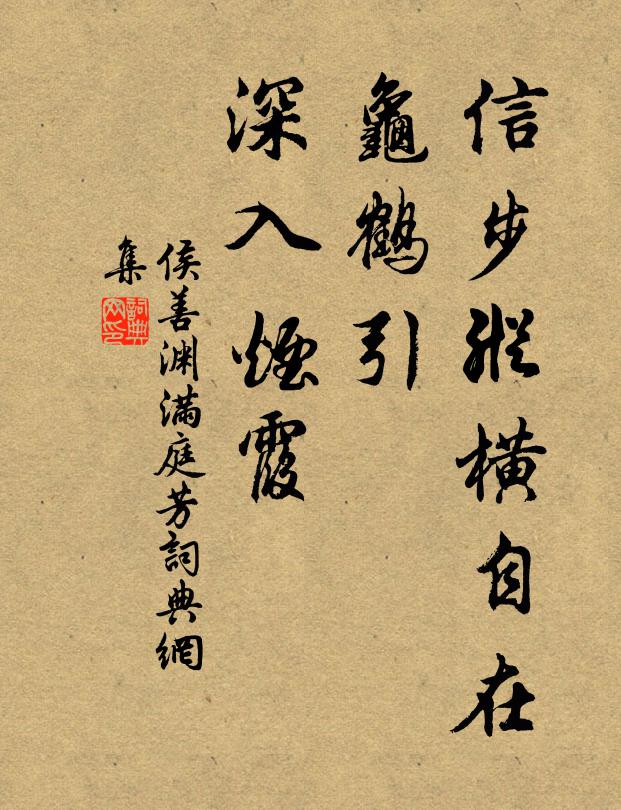 信步縱橫自在
龜鶴引
深入煙霞
侯善渊满庭芳詞典網
集
詞典
网印